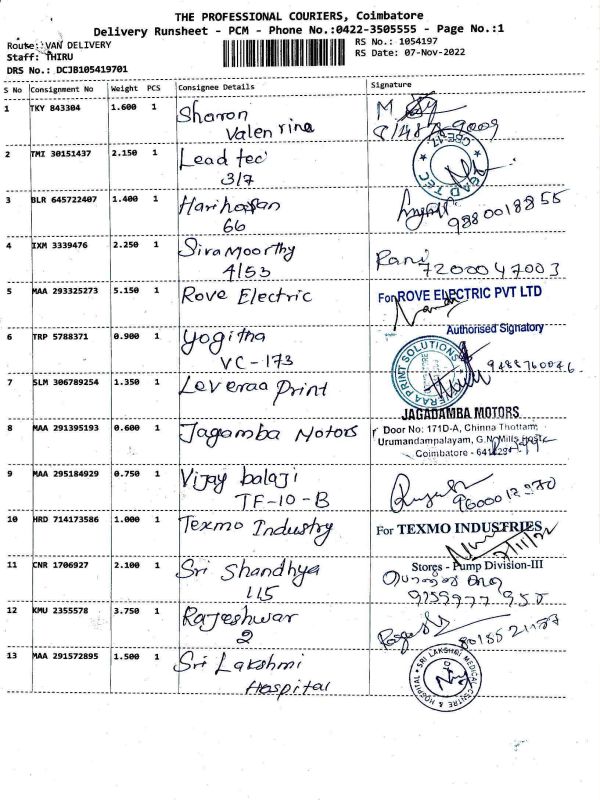 THE PROFESSIONAL COURIERS, Coimbatore
Delivery Runsheet - PCM - Phone No.:0422-3505555 - Page No.:1
Route: VAN DELIVERY
RS No.: 1054197
Staff: THIRU
RS Date: 07-Nov-2022
DRS No.: DCJB105419701
S No Consignment No Weight PCS Consignee Details Signature
1 TKY 843304 1.600 1 Sharon
Valentina
2 TMI 30151437 2.150 1 Lead tec
317
LEAD TEC
CBE-17
3 BLR 645722407 1.400 1 Hariharan
66
9880018855
4 IXM 3339476 2.250 1 Siva Moorthy Rani
4/53 7200047003
5 MAA 293325273 5.150 1 Rove Electric For ROVE ELECTRIC PVT LTD
Authorised Signatory
6 TRP 5788371 0.900 1 Yogitha
VC-173
7 SLM 306789254 1.350 1 Loveraa Print
PRINT SOLUTIONS
JAGADAMBA MOTORS
8 MAA 291395193 0.600 1 Jagamba Motors Door No: 171D-A, Chinna Thottam,
Urumandampalayam, G.N. Mills
Coimbatore -
9 MAA 295184929 0.750 1 Vijay balaji
TF-10-B 9600012970
10 HRD 714173586 1.000 1 Texmo Industry For TEXMO INDUSTRIES
Stores - Pump Division-III
11 CNR 1706927 2.100 1 Sri Shandhya
115
12 KMU 2355578 3.750 1 Rajeshwar
2
13 MAA 291572895 1.500 1 Sri Lakshmi
Hospital
SRI LAKSHMI MEDICAL CENTRE & HOSPITAL